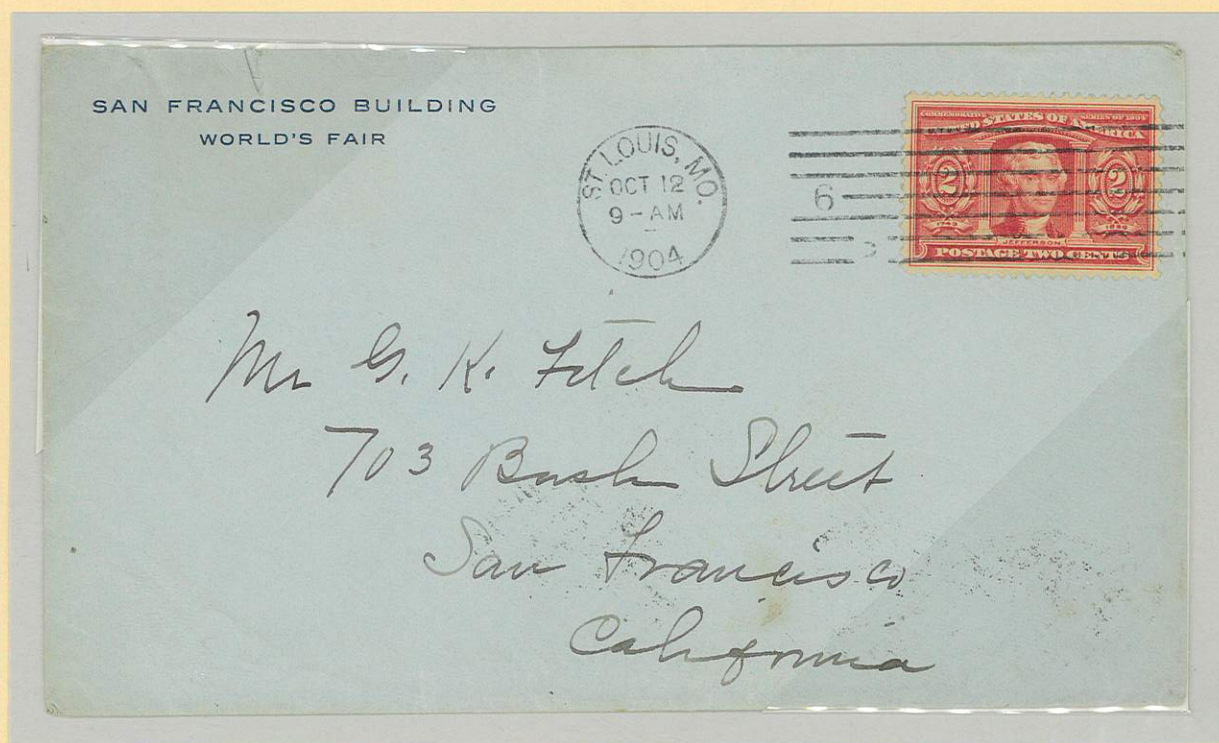 SAN FRANCISCO BUILDING
WORLD'S FAIR
ST. LOUIS, MO.
OCT 12
9-AM
1904
6
COMMEMORATIVE SERIES OF 1904
UNITED STATES OF AMERICA
2 2
JEFFERSON
POSTAGE TWO CENTS
Mr G. K. Fitch
703 Bush Street
San Francisco
California